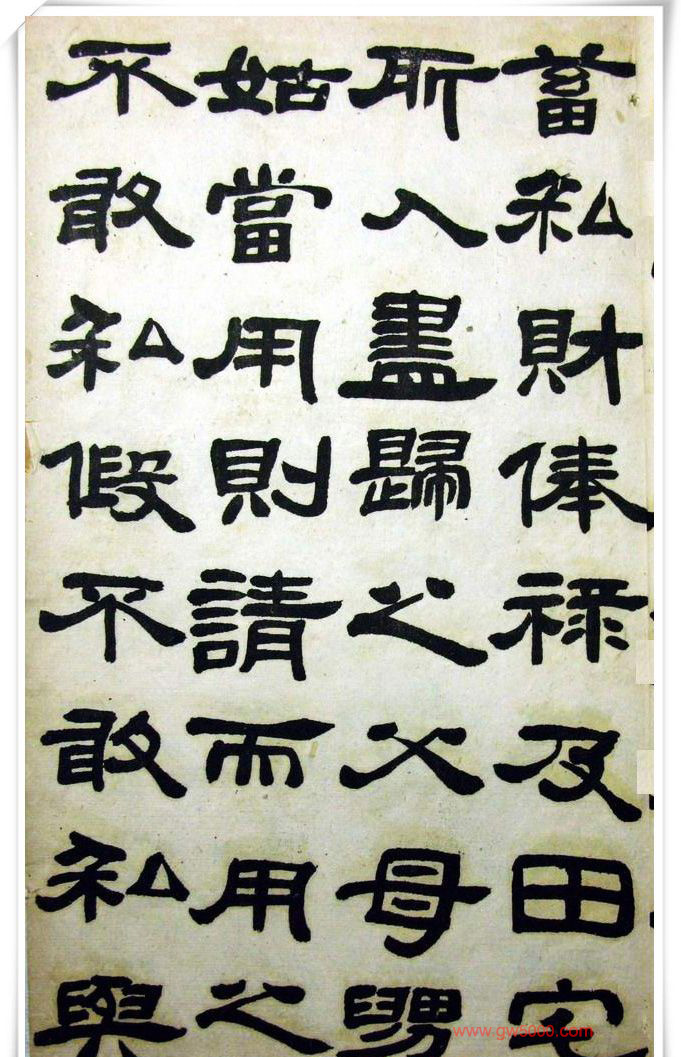 蓄私財俸祿及田宅
所入盡歸之父母舅
姑當用則請而用之
不敢私假不敢私與
www.gw5000.com